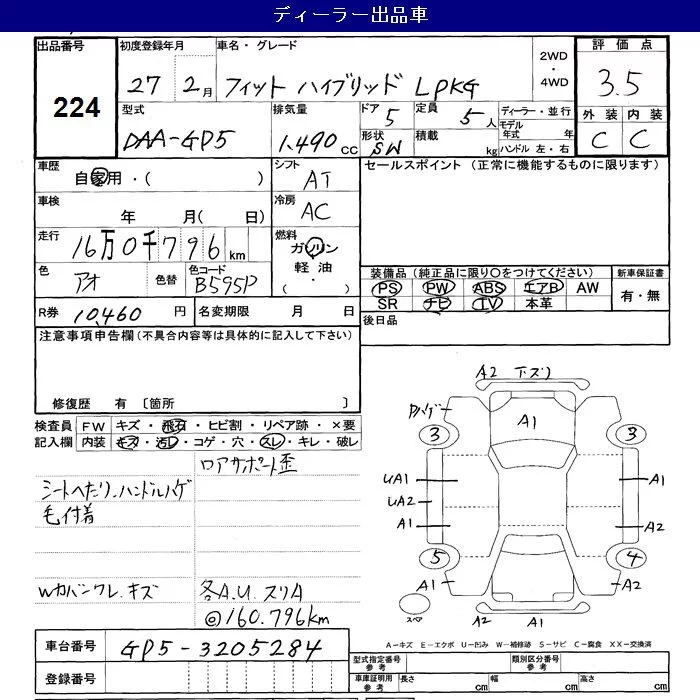 ディーラー出品車
出品番号 初度登録年月 車名・グレード 2WD・4WD 評価点
224 27年 2月 フィット ハイブリッド LPKG 3.5
型式 排気量 ドア 5 定員 5人 ディーラー・並行 外装 内装
DAA-GP5 1,490cc 形状 SW 積載 kg モデル年式 年 C C
ハンドル 左・右
車歴 自家用・( ) シフト AT セールスポイント (正常に機能するものに限ります)
車検 年 月( 日) 冷房 AC
走行 16万0千796km 燃料 ガソリン
色 アオ 色替 色コード B595P 軽油・( )
装備品 (純正品に限り〇をつけてください) 新車保証書
PS PW ABS エアB AW 有・無
SR ナビ TV 本革
R券 10,460円 名変期限 月 日 後日品
注意事項申告欄 (不具合内容等は具体的に記入して下さい)
修復歴 有 〔箇所 〕
検査員 FW キズ・飛石・ヒビ割・リペア跡・×要
記入欄 内装 キズ・汚レ・コゲ・穴・スレ・キレ・破レ
ロアサポート歪
シートヘたり、ハンドルハゲ
毛付着
Wカバンワレ、キズ 各A.U.スリA
@160.796km
A2 下スリ
A1
3 3
UA1 A1
UA2
A1 A2
5 4
A1 A2
スペア A2 A1
A-キズ E-エクボ U-凹み W-補修跡 S-サビ C-腐食 XX-交換済
車台番号 GP5-3205284
登録番号
型式指定番号 参考 類別区分番号 参考
車庫証明用 参考 長さ cm 幅 cm 高さ cm